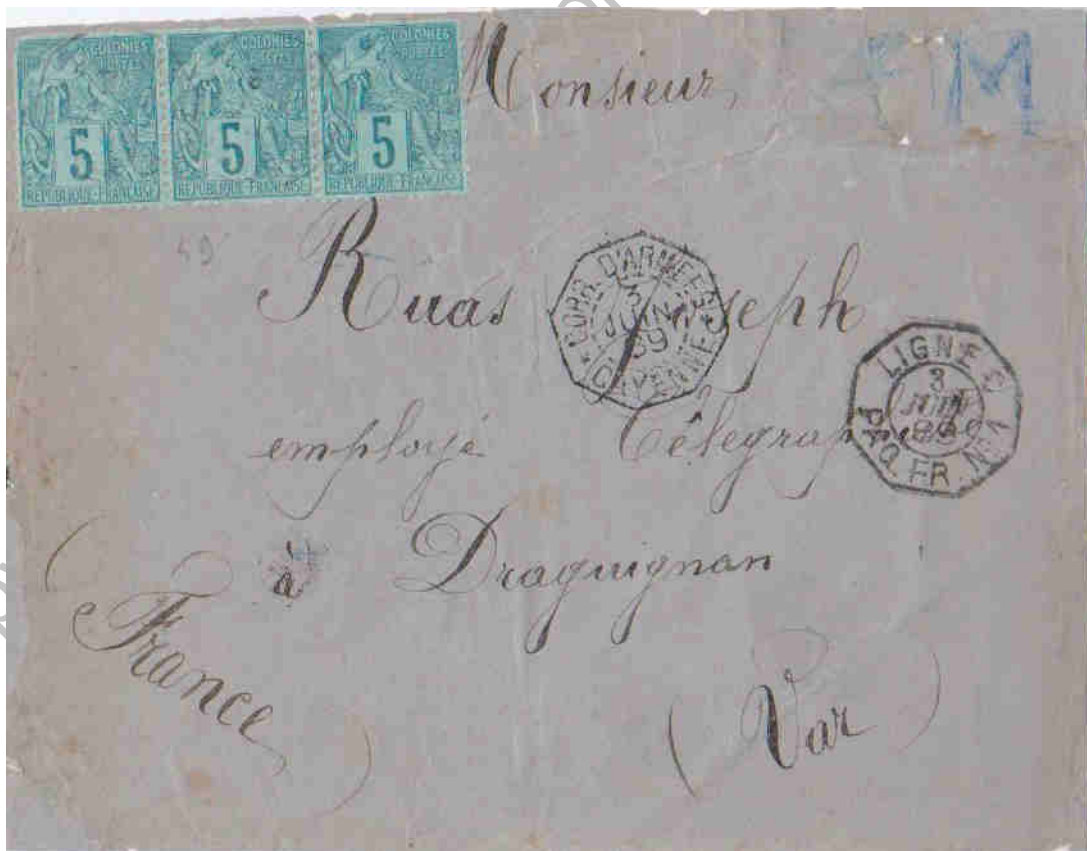 COLONIES POSTES 5 REPUBLIQUE FRANÇAISE
COLONIES POSTES 5 REPUBLIQUE FRANÇAISE
COLONIES POSTES 5 REPUBLIQUE FRANÇAISE
M
Monsieur
49
Ruas Joseph
CORR. D'ARMEES
3
JUIN
89
CAYENNE
LIGNE
3
JUIN
89
PAQ. FR. Nº1
employé
à Draguignan
France
(Var)